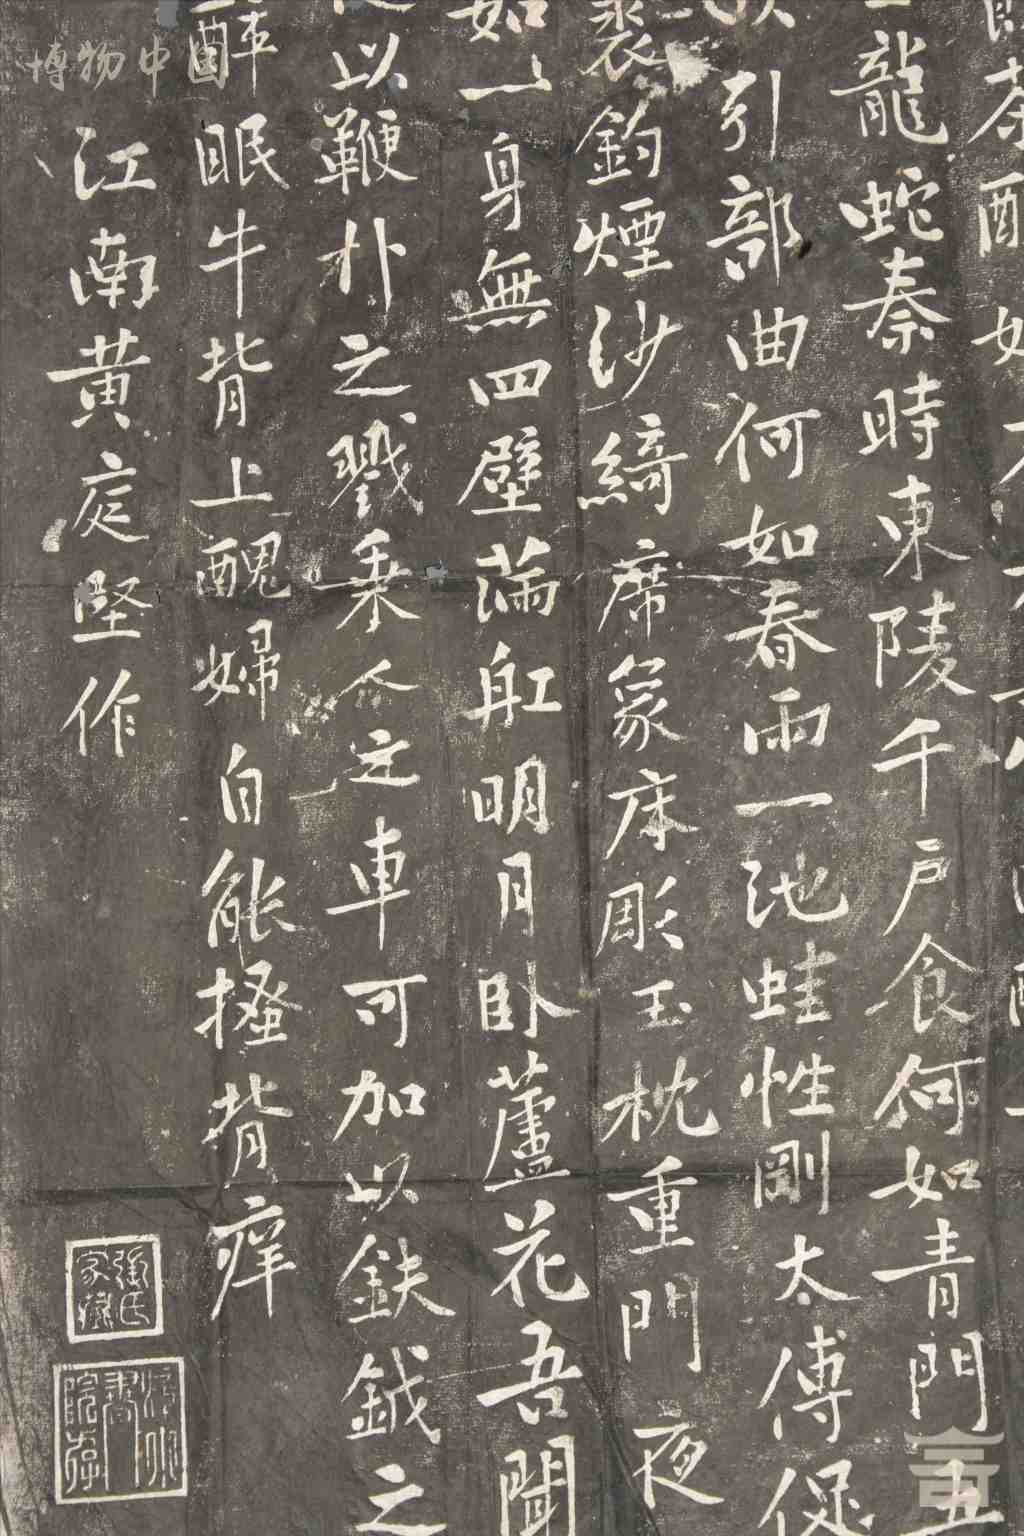 茶
龍蛇秦時東陵千戶食何如青門五
引部曲何如春雨一池蛙性剛太傅促
裘鈎煙沙綺席象床彫玉枕重門夜
如一身無四壁滿舡明月卧蘆花吾聞
以鞭扑之戮乗人之車可加以鈇鉞之
醉眠牛背上醜婦自能搔背痒
江南黄庭堅作
張氏家藏
博物中国